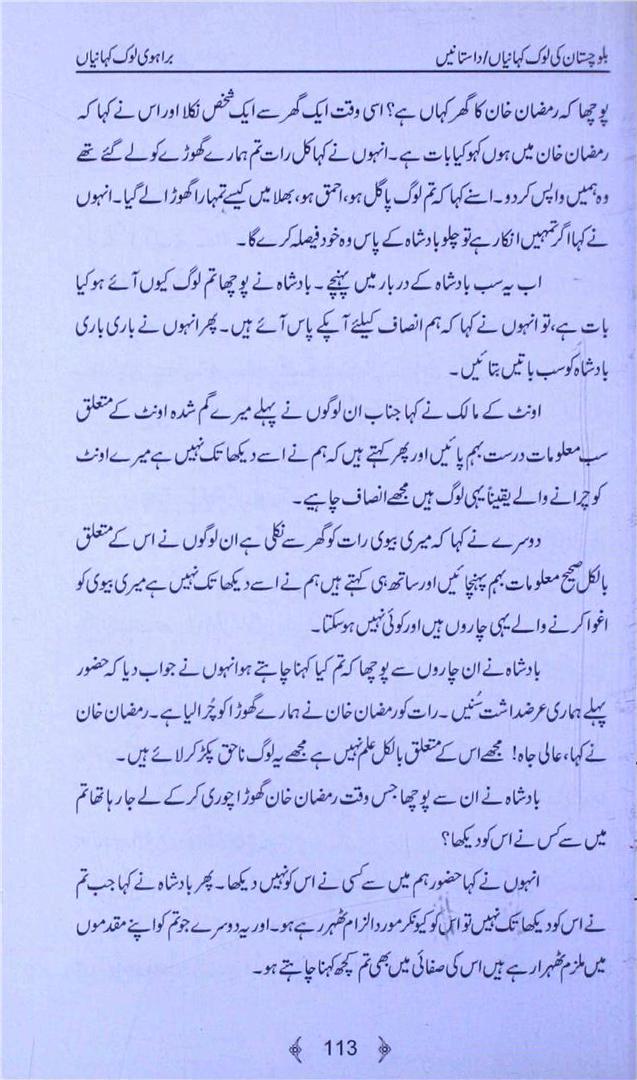 بلوچستان کی لوک کہانیاں/داستانیں
براہوی لوک کہانیاں
پوچھا کہ رمضان خان کا گھر کہاں ہے؟ اسی وقت ایک گھر سے ایک شخص نکلا اور اس نے کہا کہ
رمضان خان میں ہوں کہو کیا بات ہے۔ انہوں نے کہا کل رات تم ہمارے گھوڑے کو لے گئے تھے
وہ ہمیں واپس کر دو۔ اسنے کہا کہ تم لوگ پاگل ہو، احمق ہو، بھلا میں کیسے تمہارا گھوڑا لے گیا۔ انہوں
نے کہا اگر تمہیں انکار ہے تو چلو بادشاہ کے پاس وہ خود فیصلہ کرے گا۔
اب یہ سب بادشاہ کے دربار میں پہنچے۔ بادشاہ نے پوچھا تم لوگ کیوں آئے ہو کیا
بات ہے، تو انہوں نے کہا کہ ہم انصاف کیلئے آپکے پاس آئے ہیں۔ پھر انہوں نے باری باری
بادشاہ کو سب باتیں بتائیں۔
اونٹ کے مالک نے کہا جناب ان لوگوں نے پہلے میرے گم شدہ اونٹ کے متعلق
سب معلومات درست بہم پائیں اور پھر کہتے ہیں کہ ہم نے اسے دیکھا تک نہیں ہے میرے اونٹ
کو چرانے والے یقیناً یہی لوگ ہیں مجھے انصاف چاہیے۔
دوسرے نے کہا کہ میری بیوی رات کو گھر سے نکلی ہے ان لوگوں نے اس کے متعلق
بالکل صحیح معلومات بہم پہنچائیں اور ساتھ ہی کہتے ہیں ہم نے اسے دیکھا تک نہیں ہے میری بیوی کو
اغوا کرنے والے یہی چاروں ہیں اور کوئی نہیں ہو سکتا۔
بادشاہ نے ان چاروں سے پوچھا کہ تم کیا کہنا چاہتے ہو انہوں نے جواب دیا کہ حضور
پہلے ہماری عرضداشت سُنیں۔ رات کو رمضان خان نے ہمارے گھوڑا کو چُرا لیا ہے۔ رمضان خان
نے کہا، عالی جاہ! مجھے اس کے متعلق بالکل علم نہیں ہے مجھے یہ لوگ ناحق پکڑ کر لائے ہیں۔
بادشاہ نے ان سے پوچھا جس وقت رمضان خان گھوڑا چوری کر کے لے جا رہا تھا تم
میں سے کس نے اس کو دیکھا؟
انہوں نے کہا حضور ہم میں سے کسی نے اس کو نہیں دیکھا۔ پھر بادشاہ نے کہا جب تم
نے اس کو دیکھا تک نہیں تو اس کو کیونکر مورد الزام ٹھہر رہے ہو۔ اور یہ دوسرے جو تم کو اپنے مقدموں
میں ملزم ٹھہرا رہے ہیں اس کی صفائی میں بھی تم کچھ کہنا چاہتے ہو۔
113